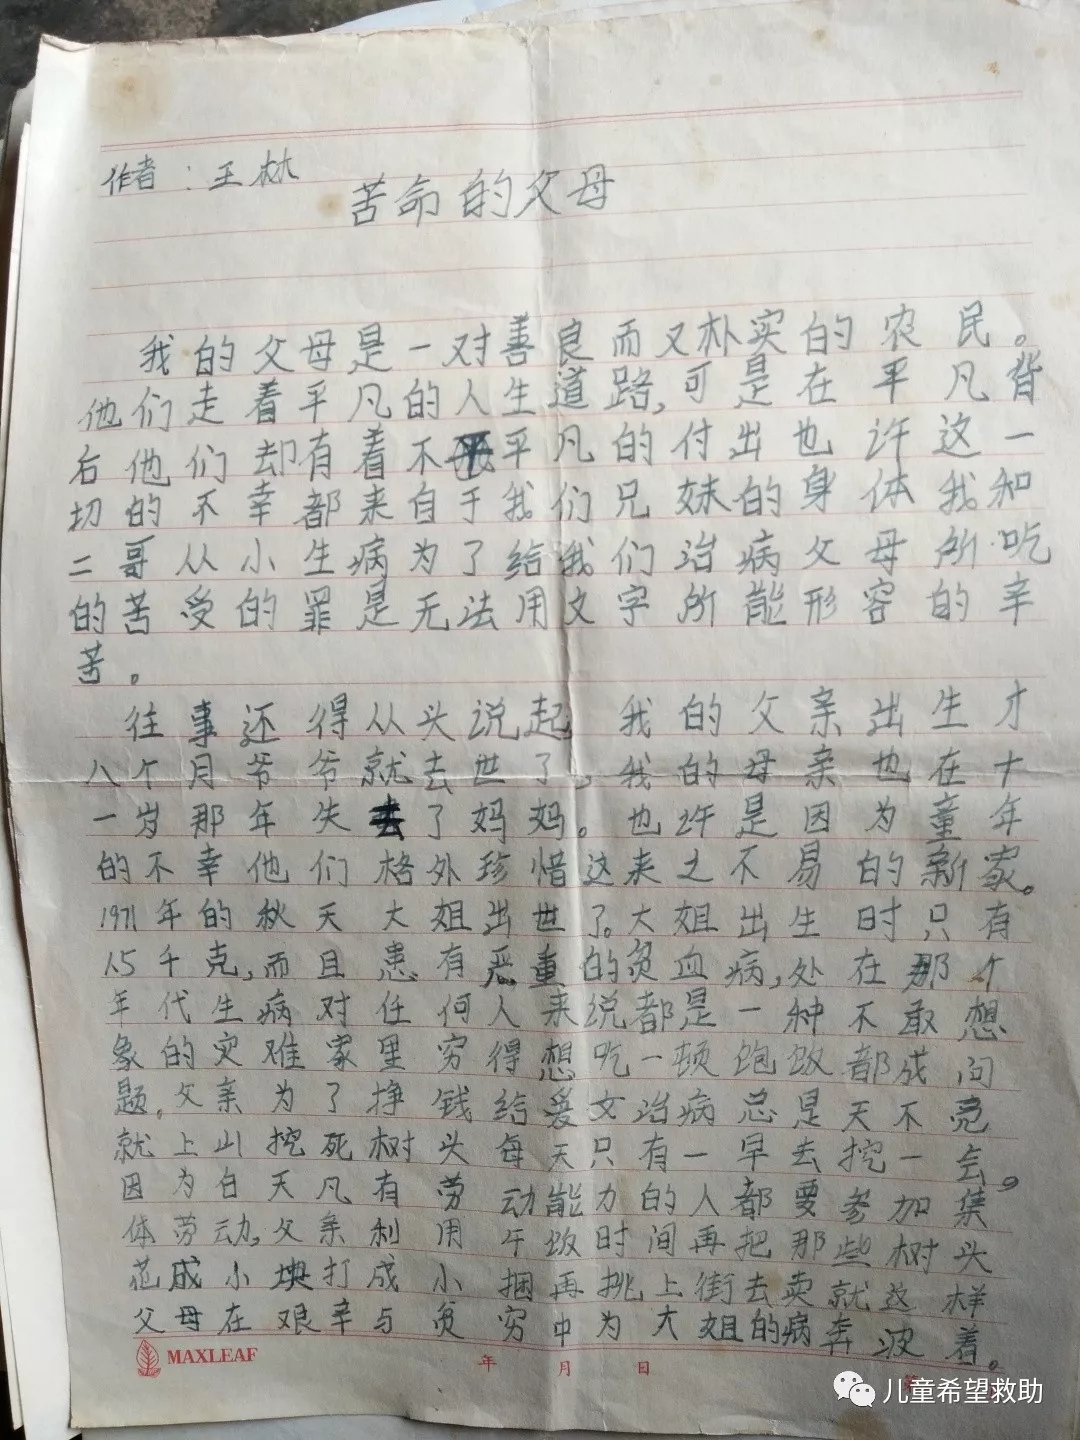 作者：王林
苦命的父母
我的父母是一对善良而又朴实的农民。
他们走着平凡的人生道路,可是在平凡背
后他们却有着不平凡的付出也许这一
切的不幸都来自于我们兄妹的身体我和
二哥从小生病为了给我们治病父母所吃
的苦受的罪是无法用文字所能形容的辛
苦。
往事还得从头说起 我的父亲出生才
八个月爷爷就去世了,我的母亲也在十
一岁那年失去了妈妈。也许是因为童年
的不幸他们格外珍惜这来之不易的新家。
1971年的秋天大姐出世了。大姐出生时只有
1.5千克,而且患有恶重的贫血病,处在那个
年代生病对任何人来说都是一种不敢想
象的灾难家里穷得想吃一顿饱饭都成问
题。父亲为了挣钱给爱女治病总是天不亮
就上山挖死树头每天只有一早去挖一会。
因为白天凡有劳动能力的人都要参加集
体劳动,父亲利用午饭时间再把那些树头
花成小块打成小捆再挑上街去卖就这样
父母在艰辛与贫穷中为大姐的病奔波着。
MAXLEAF 年 月 日
儿童希望救助